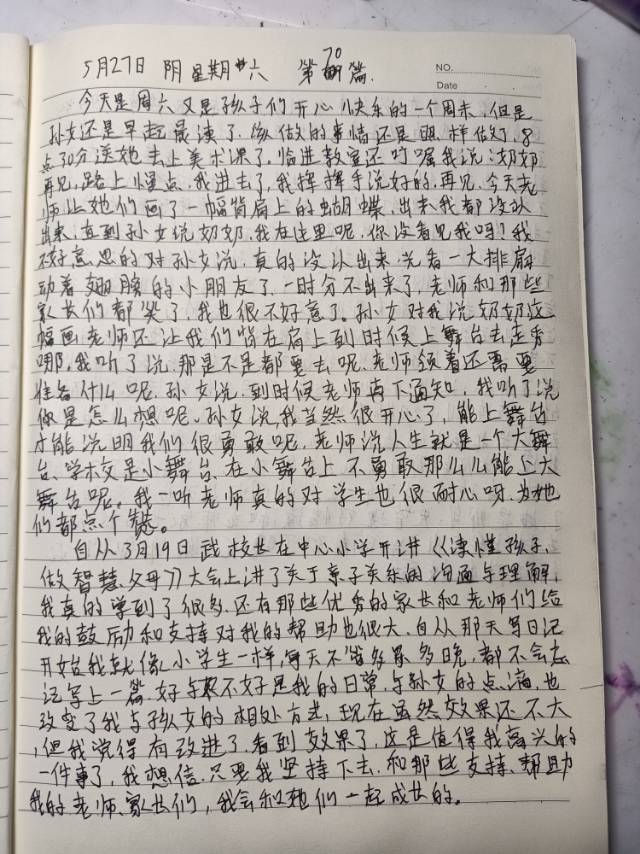 5月27日 阴 星期六 第70篇.
NO.
Date
今天是周六又是孩子们开心快乐的一个周末,但是
孙女还是早起晨读了.纵做的事情还是照样做了.8
点30分送她去上美术课了,临进教室还叮嘱我说:奶奶
再见,路上慢点.我进去了,我挥挥手说好的,再见.今天老
师让她们画了一幅背肩上的蝴蝶,出来我都没认
出来,直到孙女说奶奶,我在这里呢,你没看见我吗?我
不好意思的对孙女说,真的没认出来,光看一大排扇
动着翅膀的小朋友了,一时分不出来了,老师和那些
家长们都笑了,我也很不好意了。孙女对我说奶奶这
幅画老师还让我们背在肩上到时候上舞台去走秀
哪,我听了说,那是不是都要去呢,老师领着还需要
准备什么呢,孙女说,到时候老师再下通知,我听了说
你是怎么想呢,孙女说,我当然很开心了,能上舞台
才能说明我们很勇敢呢,老师说人生就是一个大舞
台,学校是小舞台,在小舞台上不勇敢那么么能上大
舞台呢。我一听老师真的对学生也很耐心呀,为她
们都点个赞。
自从3月19日武校长在中心小学开讲《读懂孩子,
做智慧父母》大会上讲了关于亲子关系的沟通与理解,
我真的学到了很多,还有那些优秀的家长和老师们给
我的鼓励和支持对我的帮助也很大,自从那天写日记
开始我就像小学生一样,每天不管多累多晚,都不会忘
记写上一篇,好与不好是我的日常,与孙女的点滴,也
改变了我与孙女的相处方式,现在虽然效果还不大
,但我觉得有改进了,看到效果了,这是值得我高兴的
一件事了,我想信,只要我坚持下去,和那些支持、帮助
我的老师、家长们,我会和她们一起成长的。